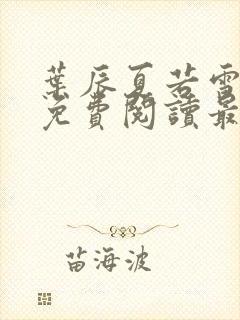 葉辰夏若雪
免費閱讀最
苗海波